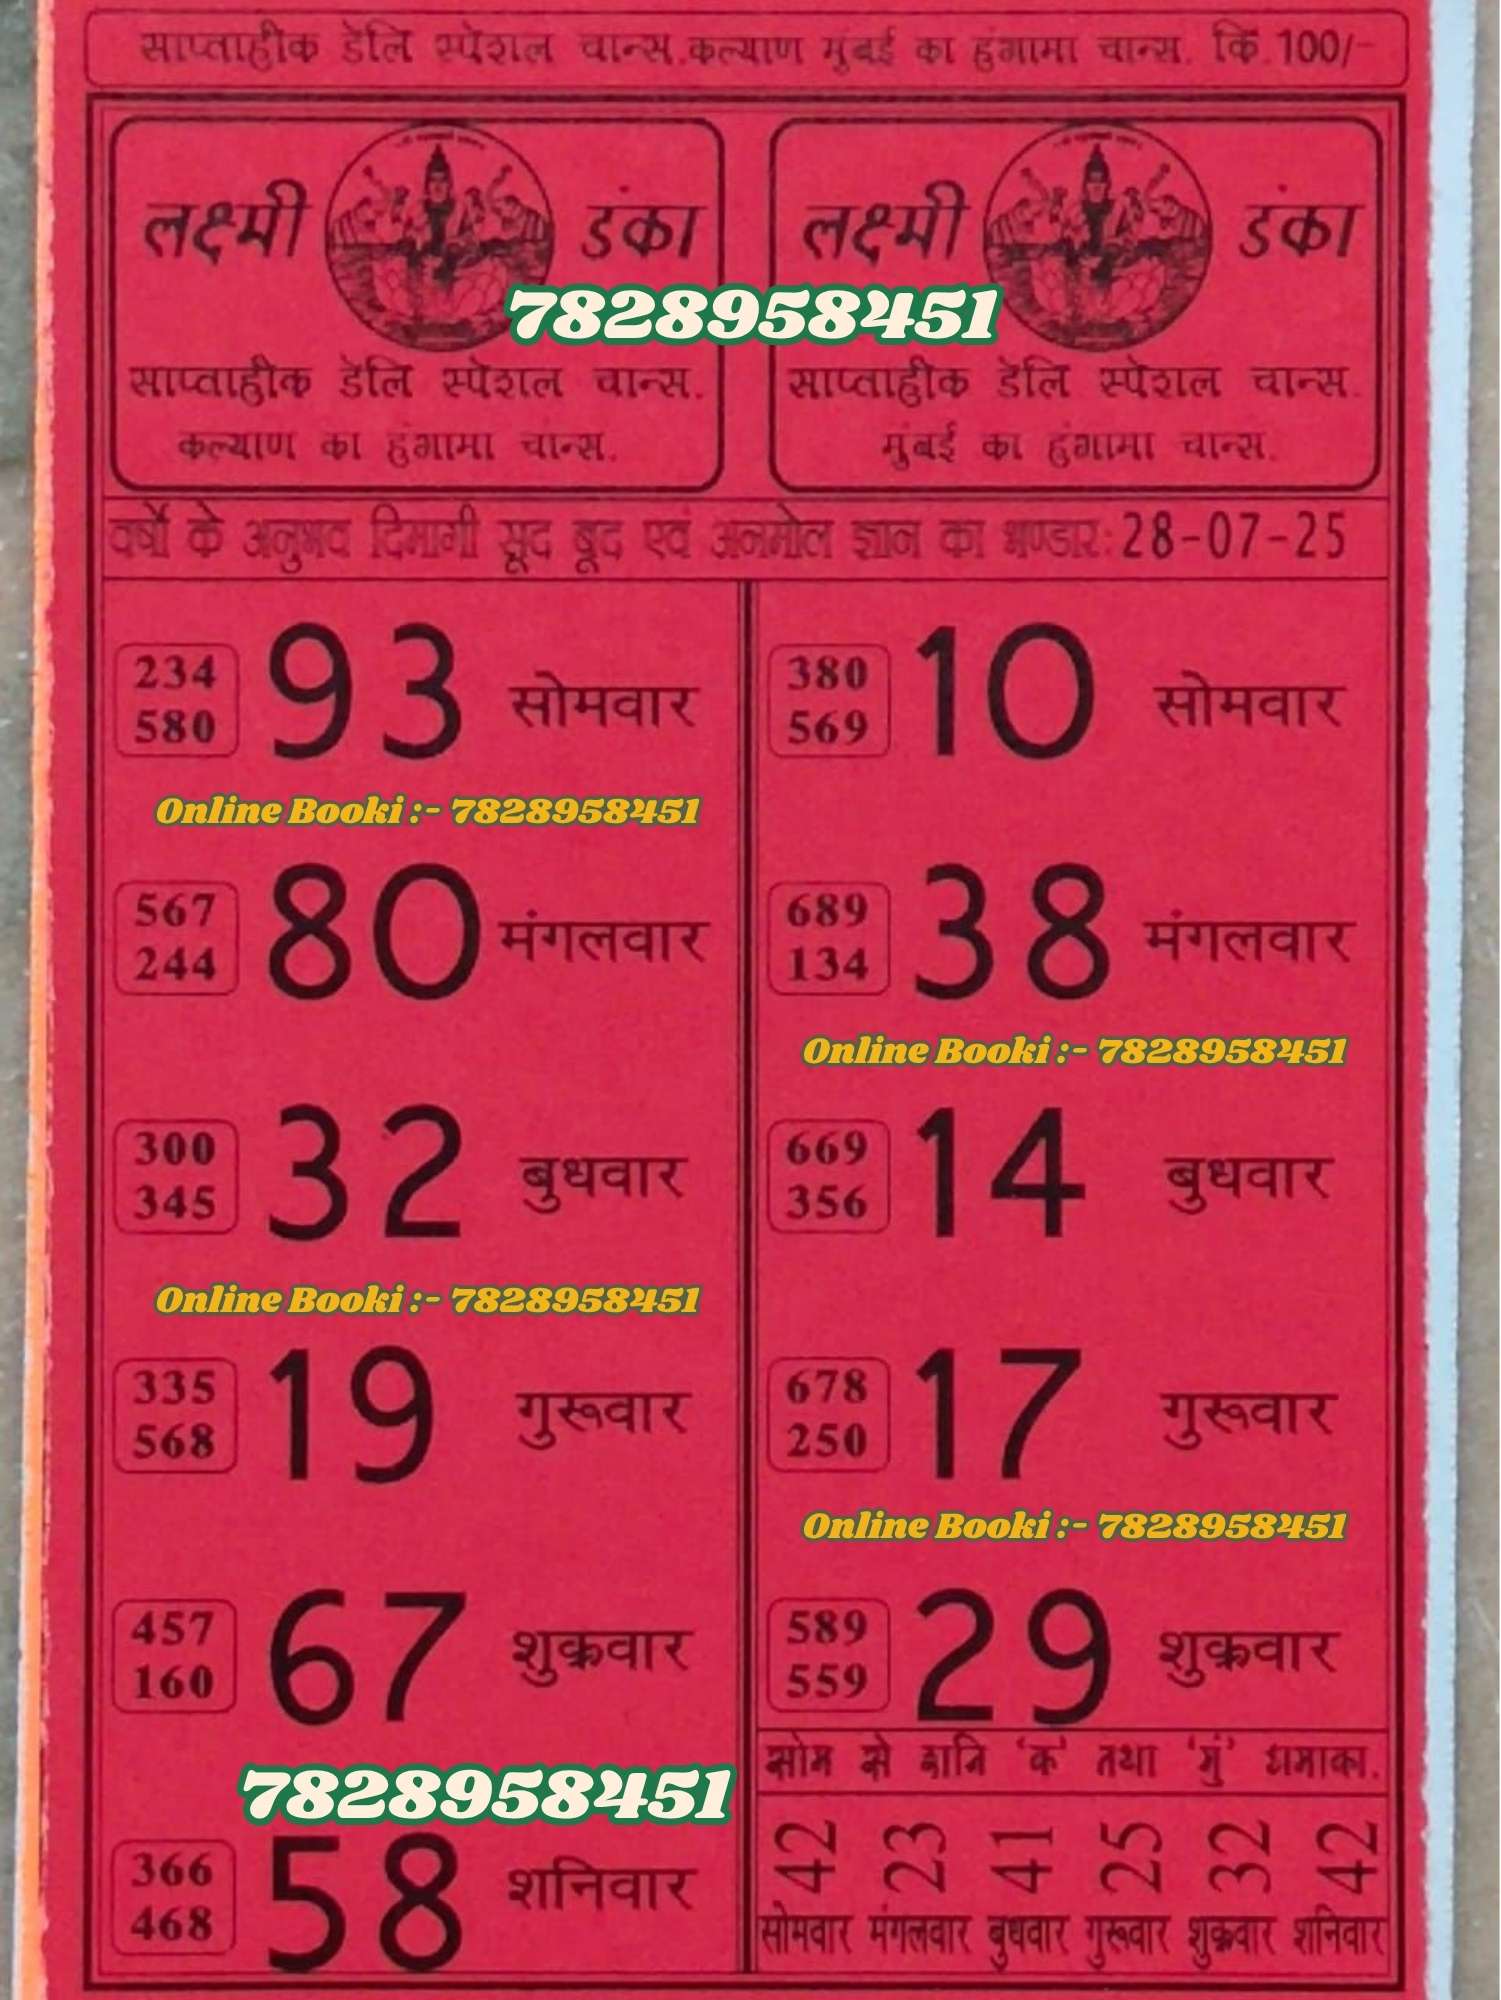 साप्ताहीक डेलि स्पेशल चान्स.कल्याण मुंबई का हुंगामा चान्स. कि.100/-
लक्ष्मी डंका
लक्ष्मी डंका
7828958451
साप्ताहीक डेलि स्पेशल चान्स.
कल्याण का हुंगामा चान्स.
साप्ताहीक डेलि स्पेशल चान्स.
मुंबई का हुंगामा चान्स.
वर्षो के अनुभव दिमागी सूद बूद एवं अनमोल ज्ञान का भण्डार: 28-07-25
234
580
93 सोमवार
380
569
10 सोमवार
Online Booki :- 7828958451
567
244
80 मंगलवार
689
134
38 मंगलवार
Online Booki :- 7828958451
300
345
32 बुधवार
669
356
14 बुधवार
Online Booki :- 7828958451
335
568
19 गुरूवार
678
250
17 गुरूवार
Online Booki :- 7828958451
457
160
67 शुक्रवार
589
559
29 शुक्रवार
7828958451
366
468
58 शनिवार
सोम से रात्रि 'क' तथा 'मुं' धमाका.
42 23 41 25 32 42
सोमवार मंगलवार बुधवार गुरूवार शुक्रवार शनिवार